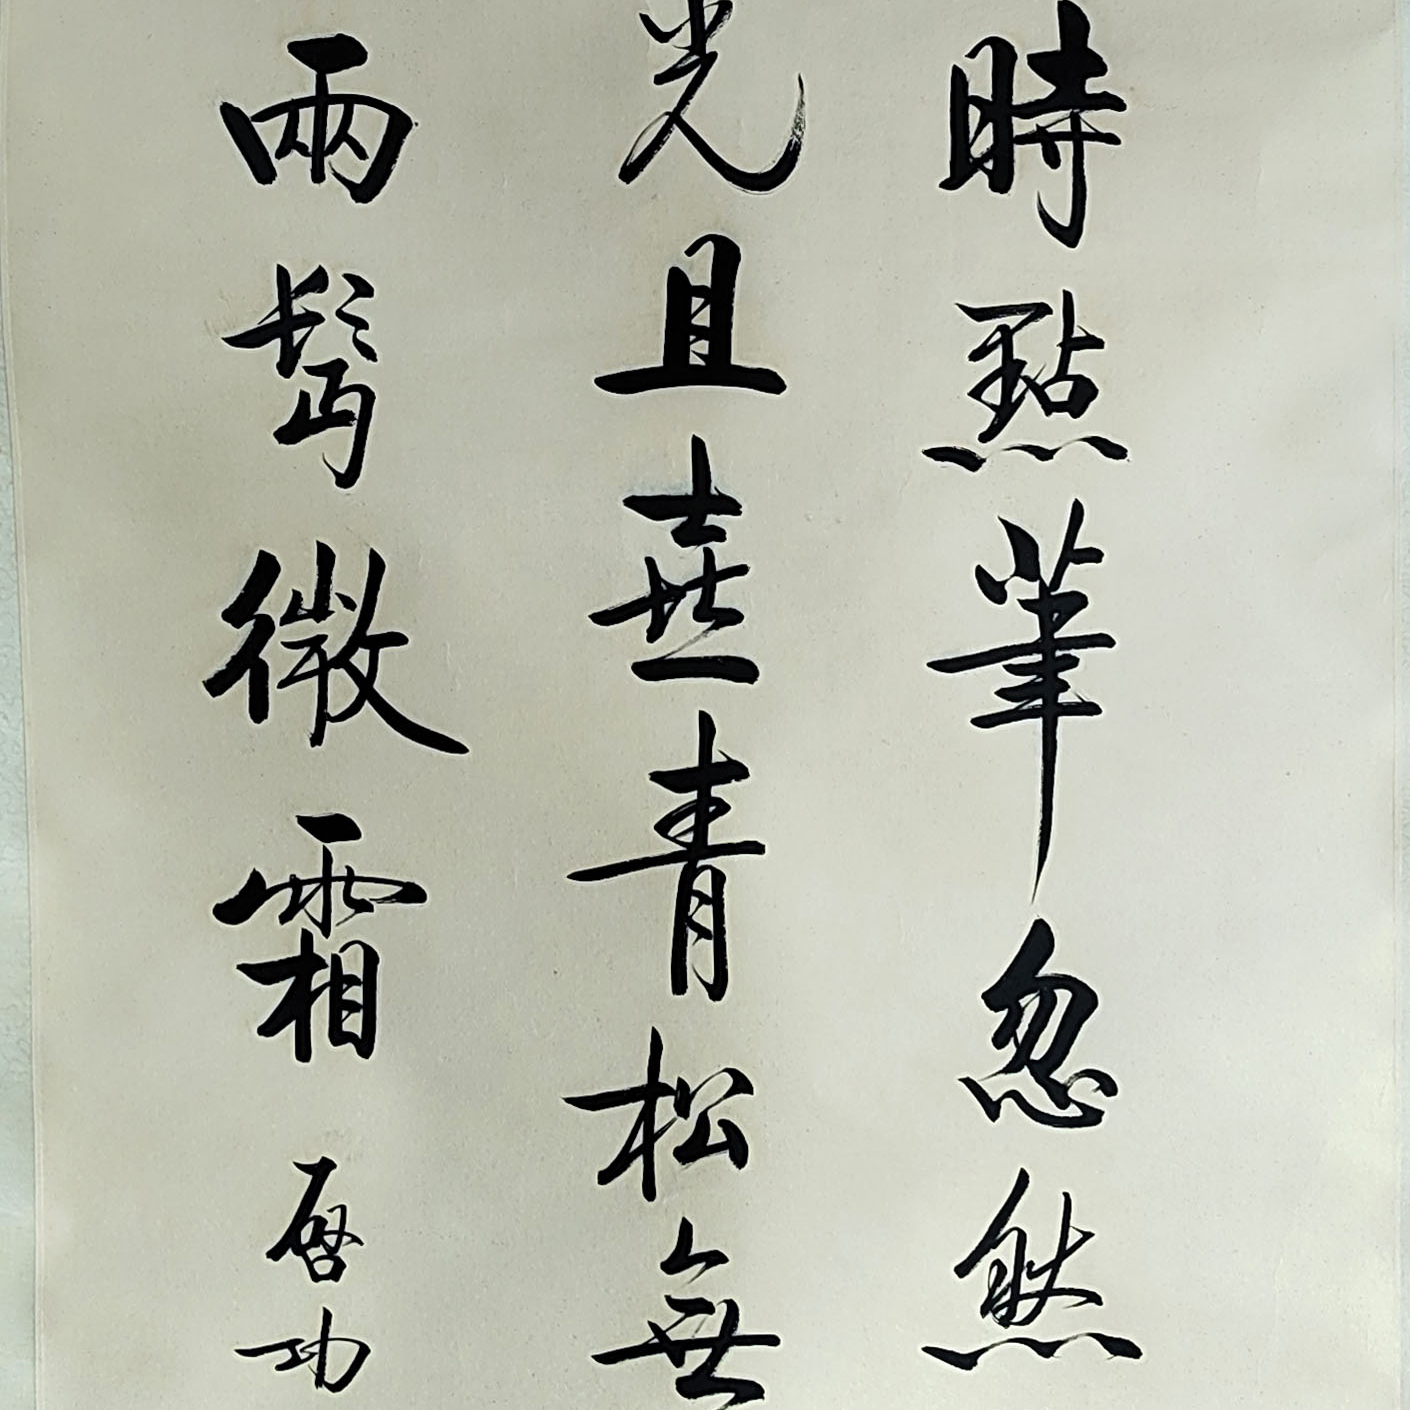 時點筆忽然
光且喜青松無
兩鬢微霜 啟功